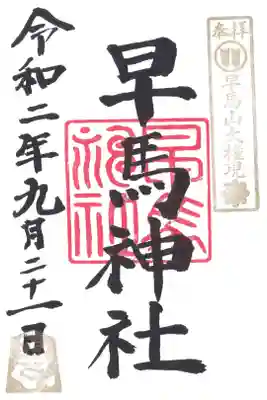 奉拝
早馬山大権現
早馬神社
令和二年九月二十一日